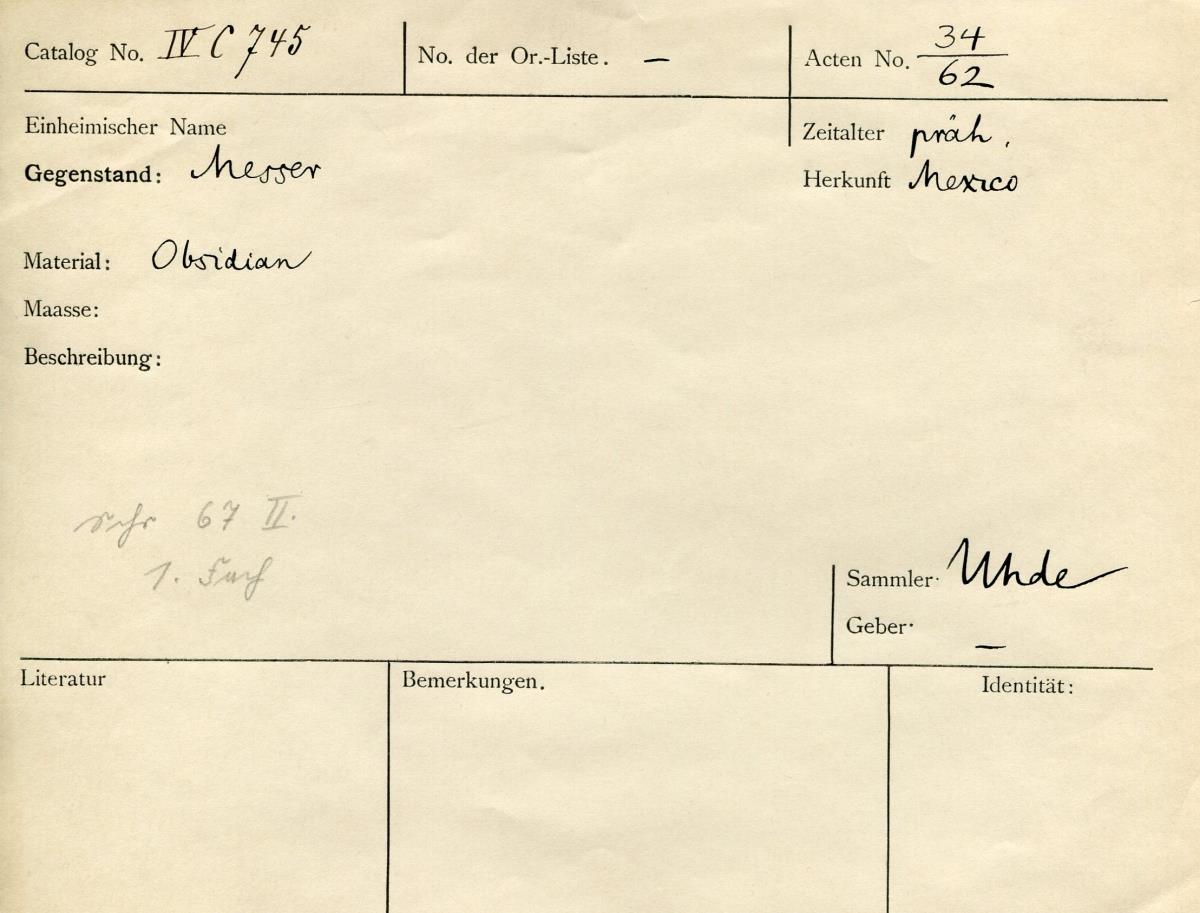 Catalog No. IV C 745 No. der Or.-Liste. — Acten No. 34/62
Einheimischer Name Zeitalter präh.
Gegenstand: Messer Herkunft Mexico
Material: Obsidian
Maasse:
Beschreibung:
Schr 67 II.
1. Fach
Sammler. Uhde
Geber. —
Literatur Bemerkungen. Identität: